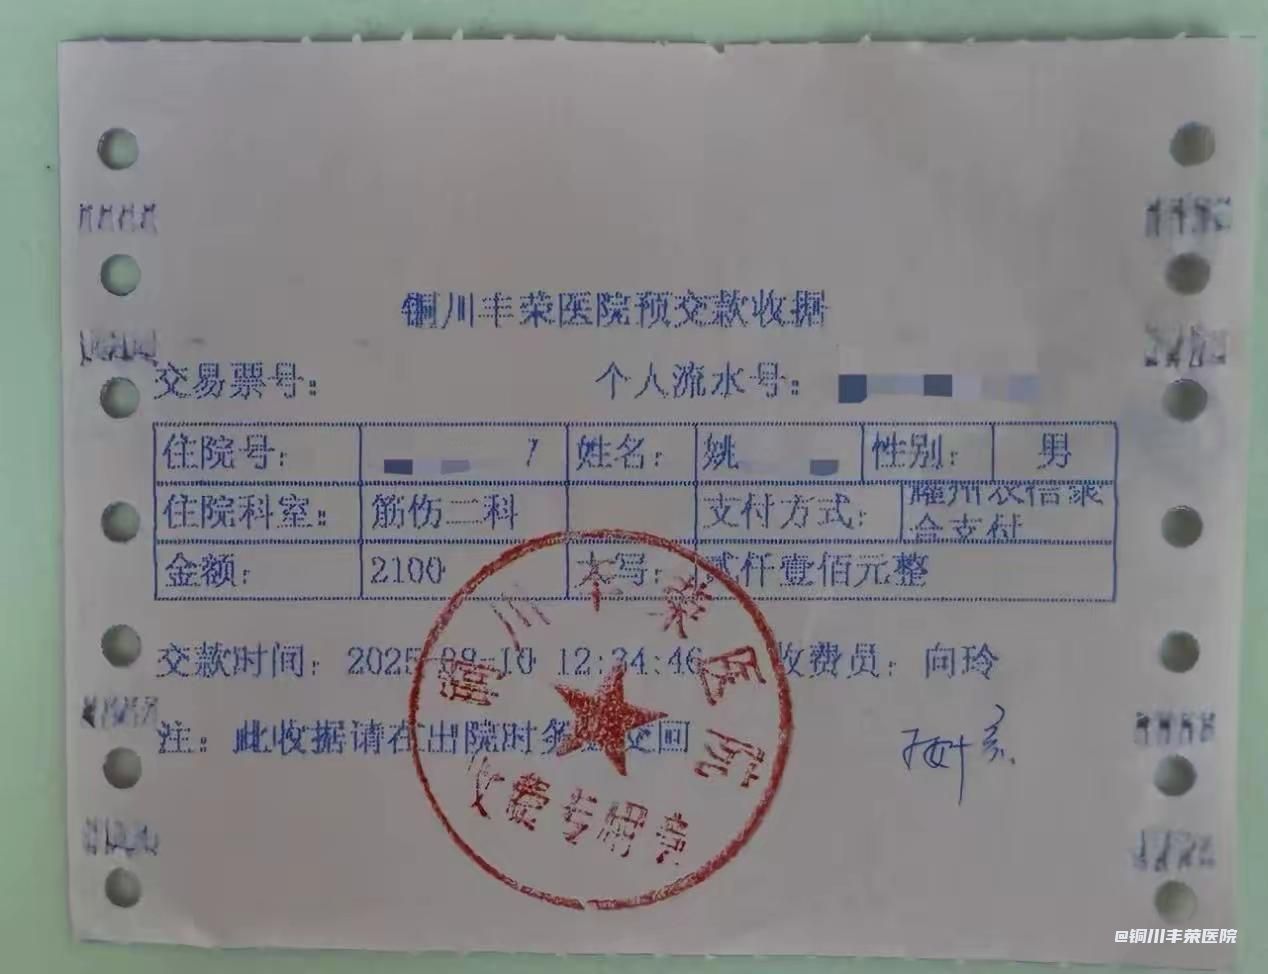 铜川丰荣医院预交款收据
交易票号： 个人流水号：
住院号： 7 姓名： 姚 性别： 男
住院科室： 筋伤二科 支付方式： 耀州农信聚合支付
金额： 2100 大写： 贰仟壹佰元整
交款时间： 2025-09-10 12:34:46 收费员： 向玲
注： 此收据请在出院时务必交回
铜川丰荣医院
收费专用章
@铜川丰荣医院